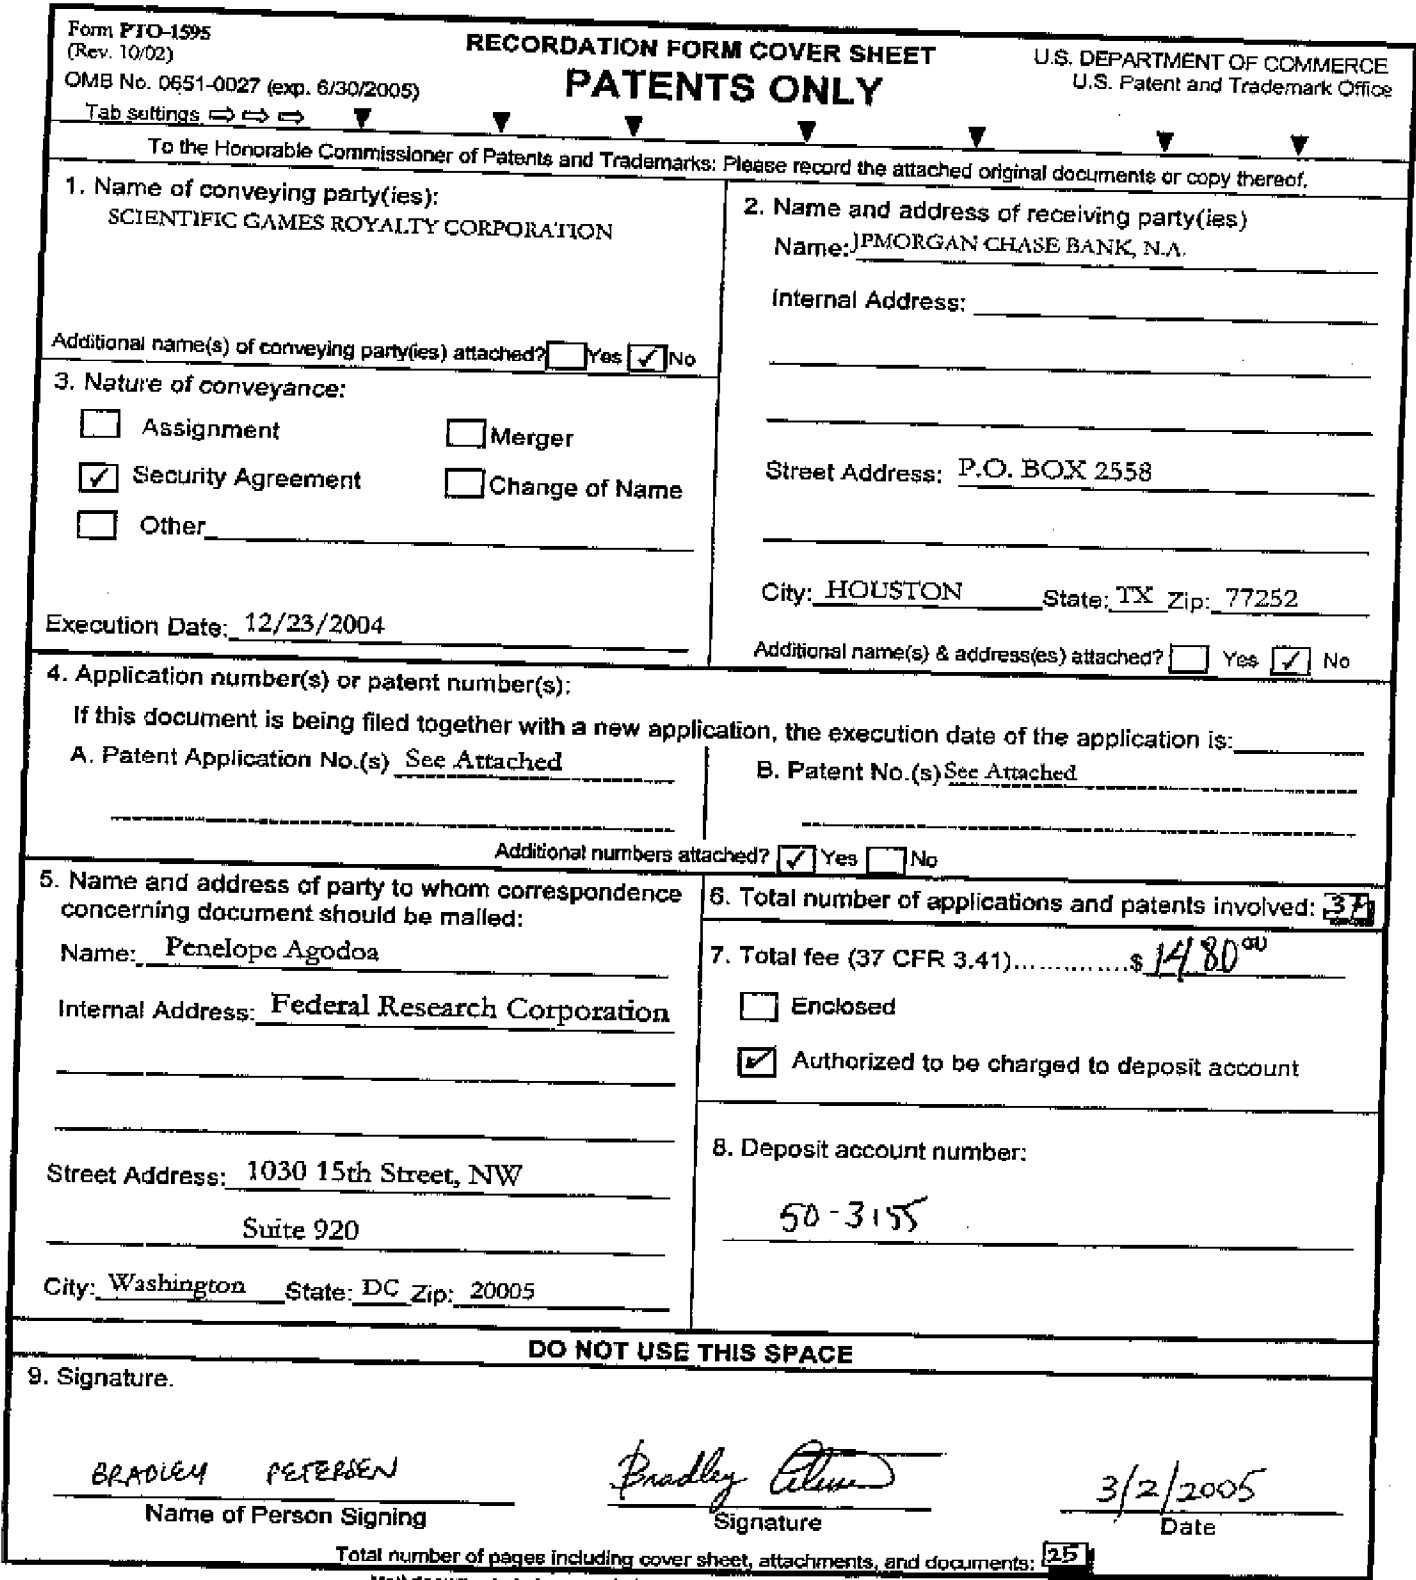 Form PTO-1595
(Rev. 10/02)
OMB No. 0651-0027 (exp. 6/30/2005)
Tab settings ⇨ ⇨ ⇨ ▼ ▼ ▼ ▼ ▼ ▼ ▼
RECORDATION FORM COVER SHEET
PATENTS ONLY
U.S. DEPARTMENT OF COMMERCE
U.S. Patent and Trademark Office
To the Honorable Commissioner of Patents and Trademarks: Please record the attached original documents or copy thereof.
1. Name of conveying party(ies):
SCIENTIFIC GAMES ROYALTY CORPORATION
Additional name(s) of conveying party(ies) attached? Yes ✓ No
2. Name and address of receiving party(ies)
Name: JPMORGAN CHASE BANK, N.A.
Internal Address:
Street Address: P.O. BOX 2558
City: HOUSTON State: TX Zip: 77252
Additional name(s) & address(es) attached? Yes ✓ No
3. Nature of conveyance:
Assignment Merger
✓ Security Agreement Change of Name
Other
Execution Date: 12/23/2004
4. Application number(s) or patent number(s):
If this document is being filed together with a new application, the execution date of the application is:
A. Patent Application No.(s) See Attached
B. Patent No.(s) See Attached
Additional numbers attached? ✓ Yes No
5. Name and address of party to whom correspondence
concerning document should be mailed:
Name: Penelope Agodoa
Internal Address: Federal Research Corporation
Street Address: 1030 15th Street, NW
Suite 920
City: Washington State: DC Zip: 20005
6. Total number of applications and patents involved: 37
7. Total fee (37 CFR 3.41)..............$ 1480 00
Enclosed
✓ Authorized to be charged to deposit account
8. Deposit account number:
50-3155
DO NOT USE THIS SPACE
9. Signature.
BRADLEY PETERSEN
Name of Person Signing
Bradley Petersen
Signature
3/2/2005
Date
Total number of pages including cover sheet, attachments, and documents: 25